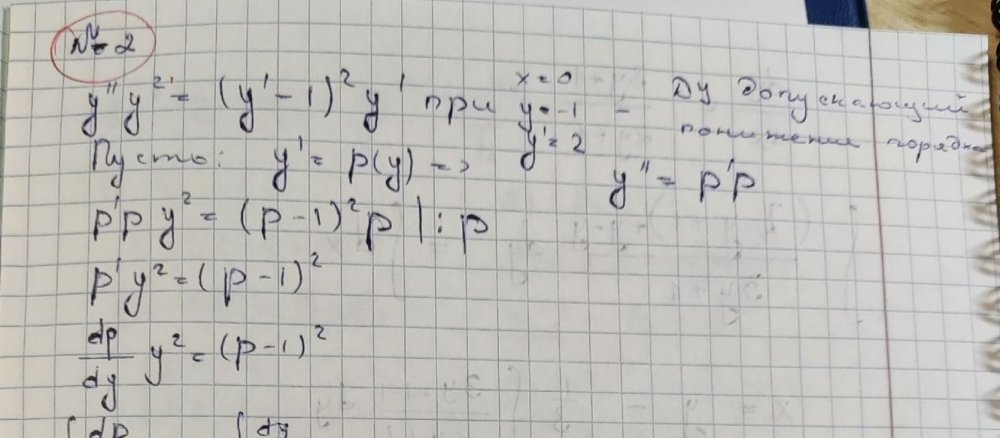 № 2
y'' y² = (y' - 1)² y' при x = 0 y = -1 y' = 2 - ДУ допускающий понижения порядка
Пусть: y' = p(y) => y'' = p'p
p'p y² = (p-1)² p |: p
p' y² = (p-1)²
dp/dy y² = (p-1)²
∫ dp ∫ dy